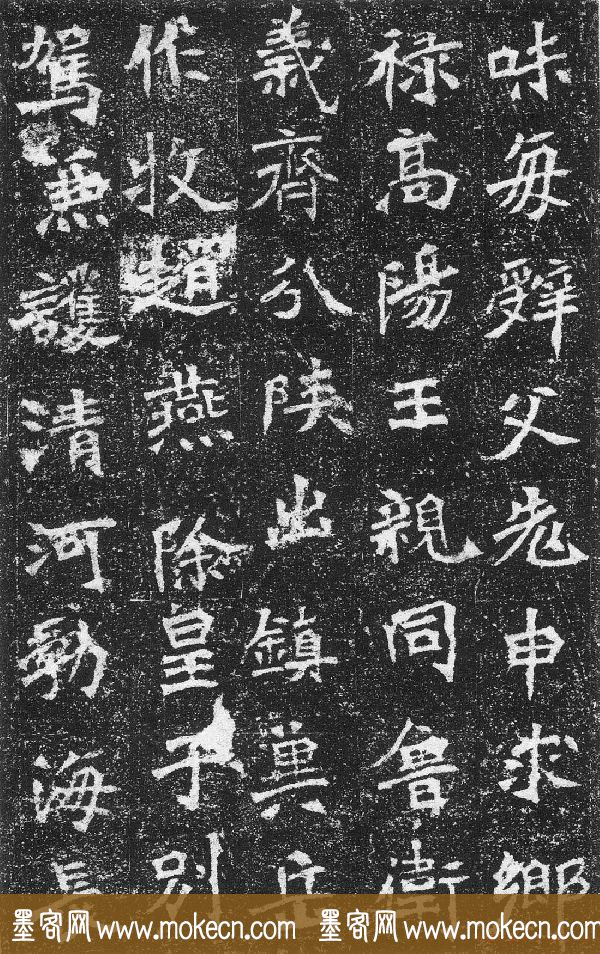 味每辤父先申求鄉
禄高陽王親同魯衛
義齊分陝出鎮冀岳
作牧趙燕除皇子別
駕兼護清河勃海長
墨客网 www.mokecn.com 墨客网 www.mokecn.com